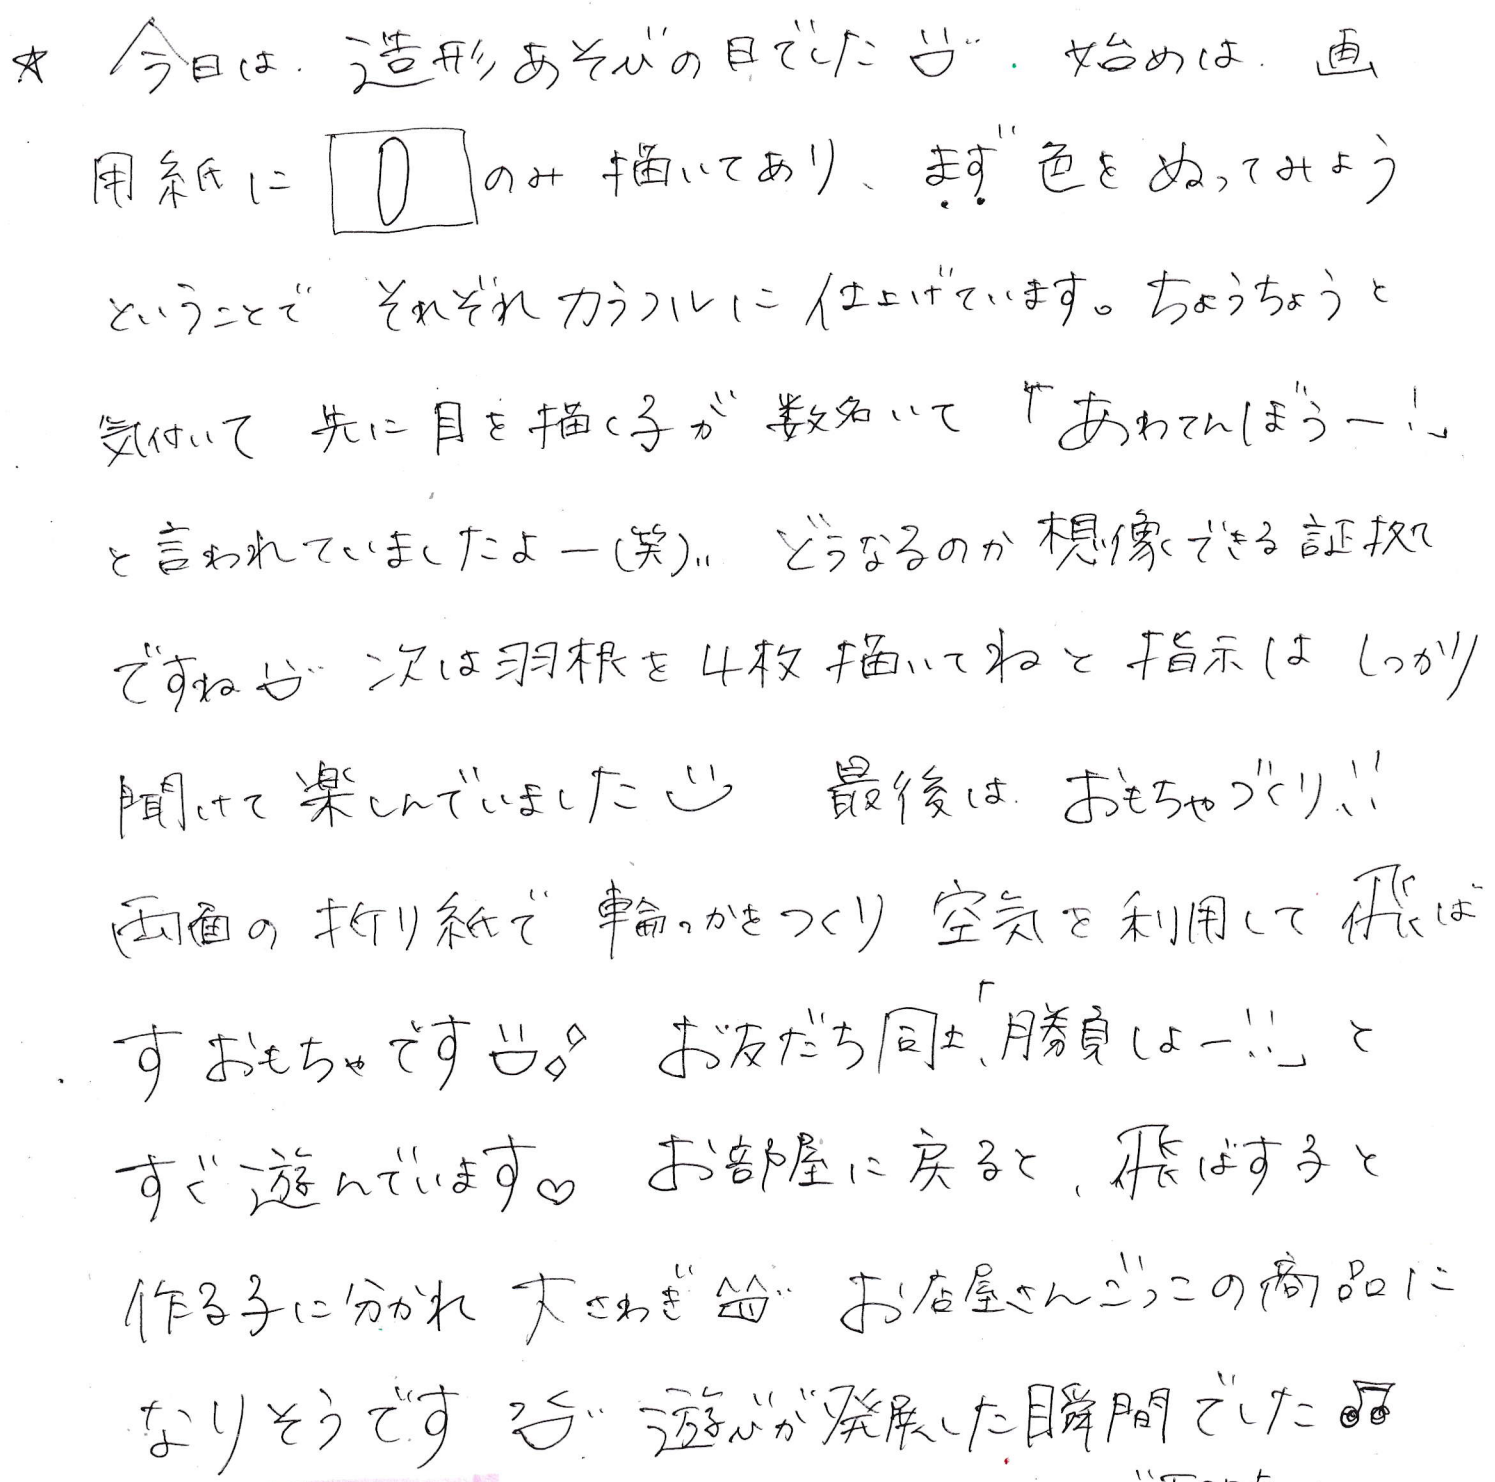 ☆ 今日は、造形あそびの日でした 始めは、画
用紙に 0 のみ 描いてあり、まず 色を ぬってみよう
ということで それぞれカラフルに仕上げています。ちょうちょうと
気付いて 先に目を描く子が 数名いて 「あわてんぼうー!」
と言われていましたよー(笑)。 どうなるのか想像できる証拠
ですね 次は羽根を4枚描いてねと指示はしっかり
聞けて楽しんでいました 最後は、おもちゃづくり!!
両面の折り紙で 輪っかをつくり 空気を利用して飛ば
すおもちゃです お友だち同士、「勝負しよー!!」と
すぐ遊んでいます♡ お部屋に戻ると、飛ばす子と
作る子に分かれ 大さわぎ お店屋さんごっこの商品に
なりそうです 遊びが発展した瞬間でした♫